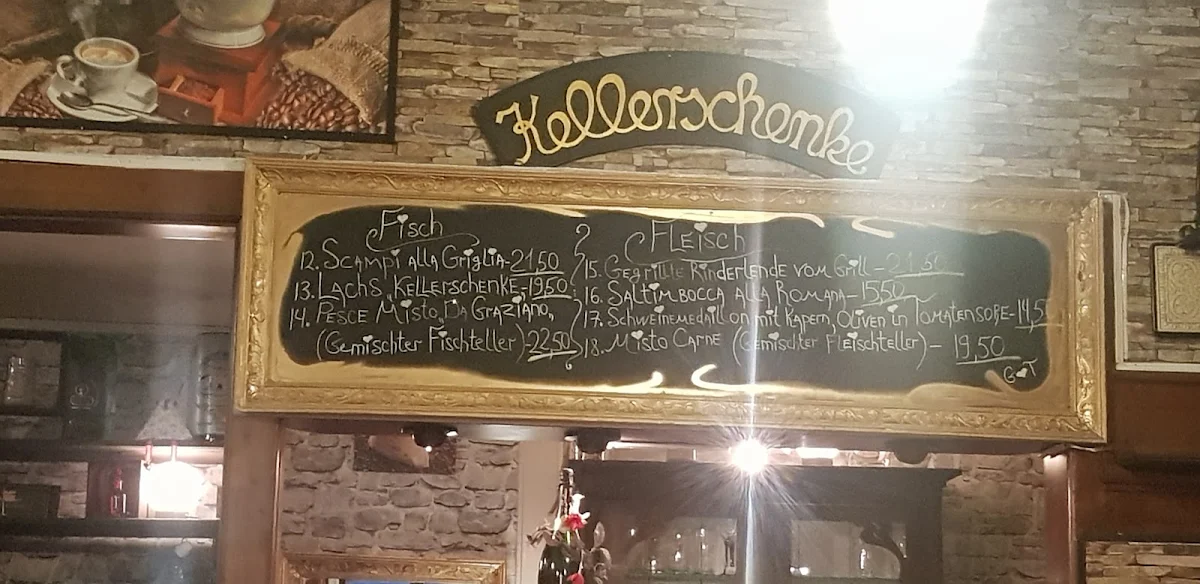 Kellerschenke
Fisch
12. Scampi alla Griglia-21,50
13. Lachs "Kellerschenke-19,50
14. Pesce Misto "Da Graziano"
(Gemischter Fischteller)-22,50
Fleisch
15. Gegrillte Rinderlende vom Grill - 21,50
16. Saltimbocca alla Romana - 15,50
17. Schweinemedaillon mit Kapern, Oliven in Tomatensoße - 14,5
18. Misto Carne (Gemischter Fleischteller) - 19,50